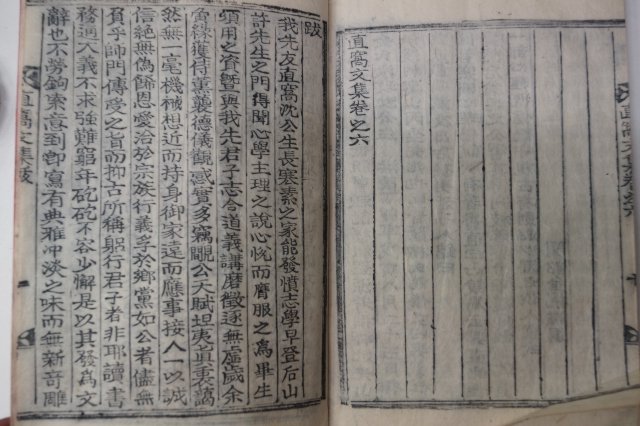 直窩文集卷之六
跋
我先友直窩沈公生長寒素之家能發憤志學早登后山
許先生之門得聞心學主理之說心悅而膺服之為畢生
須用之資曁與我先君子志合道義講磨徵逐無虛歲余
寅緣獲侍薰襲德儀觀感實多竊覸公天賦坦夷直衷藹
然無一毫機械想近而持身御家遠而應事接人一以誠
信絶無偽歸恩愛洽於宗族行義孚於鄉黨如公者儘無
負乎師門傳受之旨而抑古所稱躬行君子者非耶讀書
務適大義不求強難窮年矻矻不容少懈是以其發為文
辭也不勞鉤索意到卽寫有典雅冲淡之味而無新奇雕
直窩文集跋